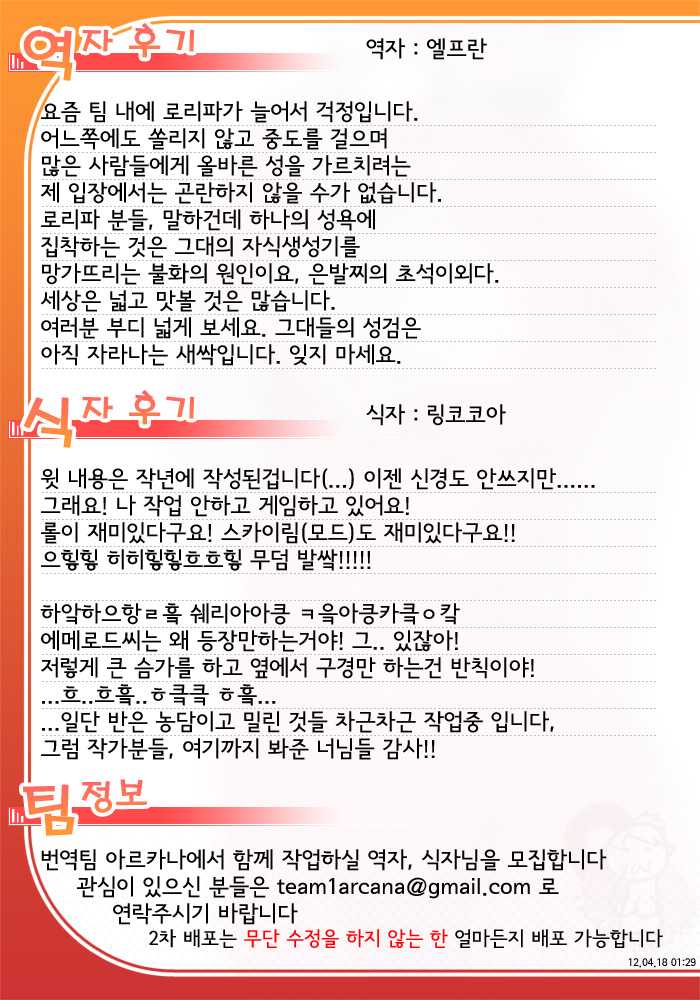 역자 후기
역자 : 엘프란
요즘 팀 내에 로리파가 늘어서 걱정입니다.
어느쪽에도 쏠리지 않고 중도를 걸으며
많은 사람들에게 올바른 성을 가르치려는
제 입장에서는 곤란하지 않을 수가 없습니다.
로리파 분들, 말하건데 하나의 성욕에
집착하는 것은 그대의 자식생성기를
망가뜨리는 불화의 원인이요, 은발찌의 초석이외다.
세상은 넓고 맛볼 것은 많습니다.
여러분 부디 넓게 보세요. 그대들의 성검은
아직 자라나는 새싹입니다. 잊지 마세요.
식자 후기
식자 : 링코코아
윗 내용은 작년에 작성된겁니다(...) 이젠 신경도 안쓰지만......
그래요! 나 작업 안하고 게임하고 있어요!
롤이 재미있다구요! 스카이림(모드)도 재미있다구요!!
으힣힣 히히힣힣흐흐힣 무덤 발쌐!!!!!
하앜하으항ㄹ흨 쉐리아아킁 ㅋ읔아킁카킄ㅇ캌
에메로드씨는 왜 등장만하는거야! 그.. 있잖아!
저렇게 큰 슴가를 하고 옆에서 구경만 하는건 반칙이야!
...흐..흐흨..ㅎ킄킄 ㅎ흨...
...일단 반은 농담이고 밀린 것들 차근차근 작업중 입니다,
그럼 작가분들, 여기까지 봐준 너님들 감사!!
팀 정보
번역팀 아르카나에서 함께 작업하실 역자, 식자님을 모집합니다
관심이 있으신 분들은 team1arcana@gmail.com 로
연락주시기 바랍니다
2차 배포는 무단 수정을 하지 않는 한 얼마든지 배포 가능합니다
12.04.18 01:29